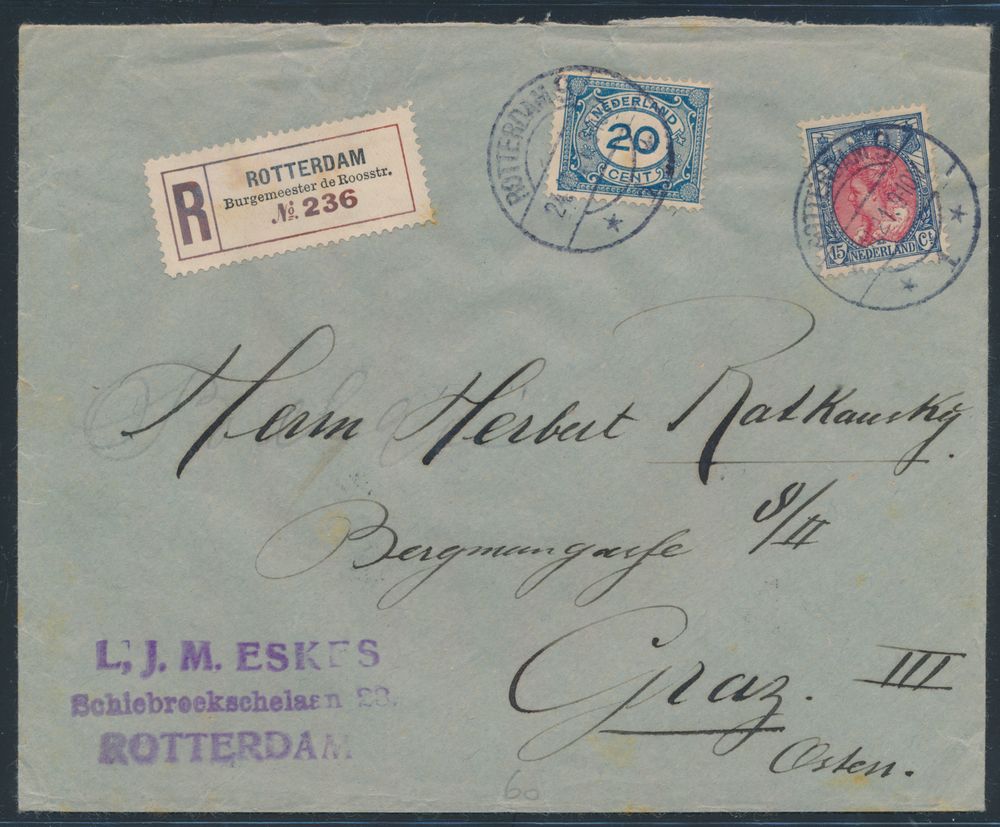 R
ROTTERDAM
Burgemeester de Roosstr.
№ 236
ROTTERDAM. 9
NEDERLAND
20
CENT
ROTTERDAM. 9
15 NEDERLAND Ct
Herrn Herbert Ratkansky.
Bergmangasse 8/II
Graz. III
Osten.
L. J. M. ESKES
Schiebroekschelaan 23.
ROTTERDAM
60